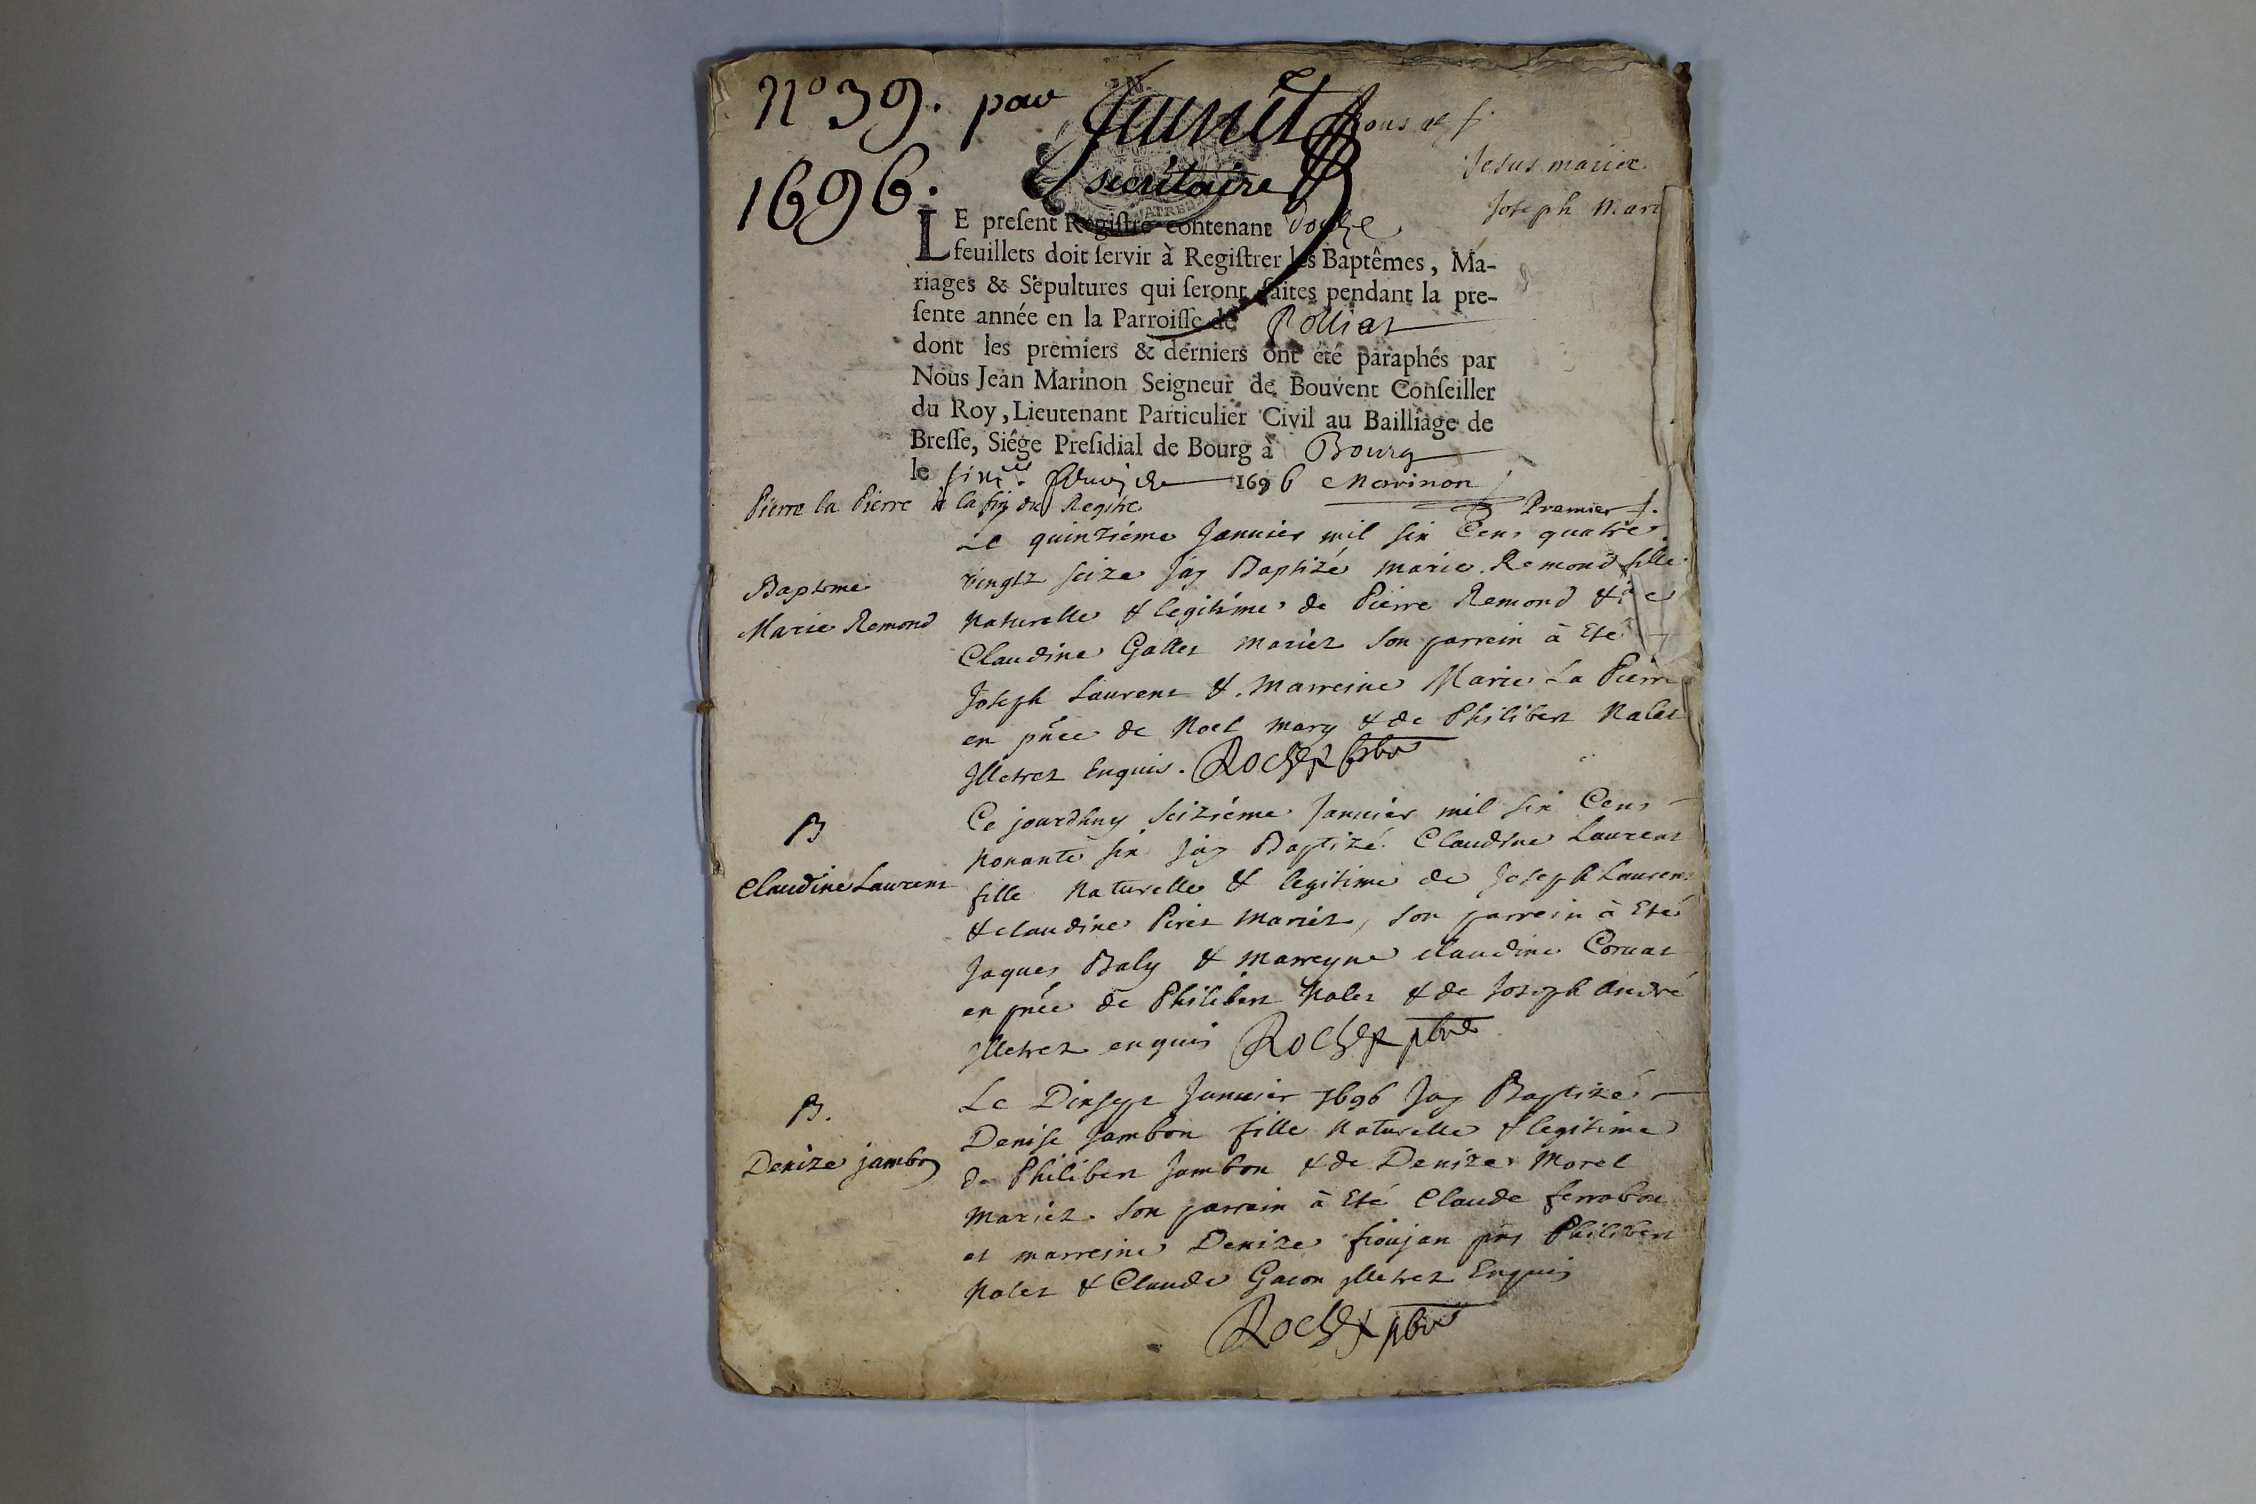 N° 39. par Junet
1696. secrétaire
Jesus maria
Joseph Mari
LE present Registre contenant douze
feuillets doit servir à Registrer les Baptêmes, Ma-
riages & Sepultures qui seront faites pendant la pre-
sente année en la Parroisse de Polliat
dont les premiers & derniers ont été paraphés par
Nous Jean Marinon Seigneur de Bouvent Conseiller
du Roy, Lieutenant Particulier Civil au Bailliage de
Bresse, Siége Presidial de Bourg à Bourg
le 1696 Marinon
Pierre la Pierre à la fin du Registre
Premier f.
Le quinziéme Januier mil six Cens quatre
vingtz seize jay Baptizé marie Remond fille
Baptsme
Marie Remond
Naturelle & legitime de Pierre Remond & de
Claudine Gallet mariez son parrein à Eté
Joseph Laurent & Marreine Marie La Pierre
en pñce de Noel mary & de Philibert Nalet
Jlletrez Enquis. Rochex pbre
Ce jourdhuy seiziéme Januier mil six Cens
nonante six jay Baptizé Claudine Laurent
B
Claudine Laurent
fille Naturelle & legitime de Joseph Laurent
& claudine Piret Mariez, son parrein à Eté
Jaques Baly & Marreyne claudine Coruat
en pñce de Philibert Nalet & de Joseph André
Jlletrez enquis Rochex pbre
Le Dixsept Januier 1696 Jay Baptizé
B.
Denize jambon
Denise Jambon fille Naturelle & legitime
de Philibert Jambon & de Denize Morel
Mariez. son parrain à Eté Claude ferrabou
et marreine Denize fioujan pñs Philibert
Nalet & Claude Gacon jlletrez Enquis
Rochex pbre